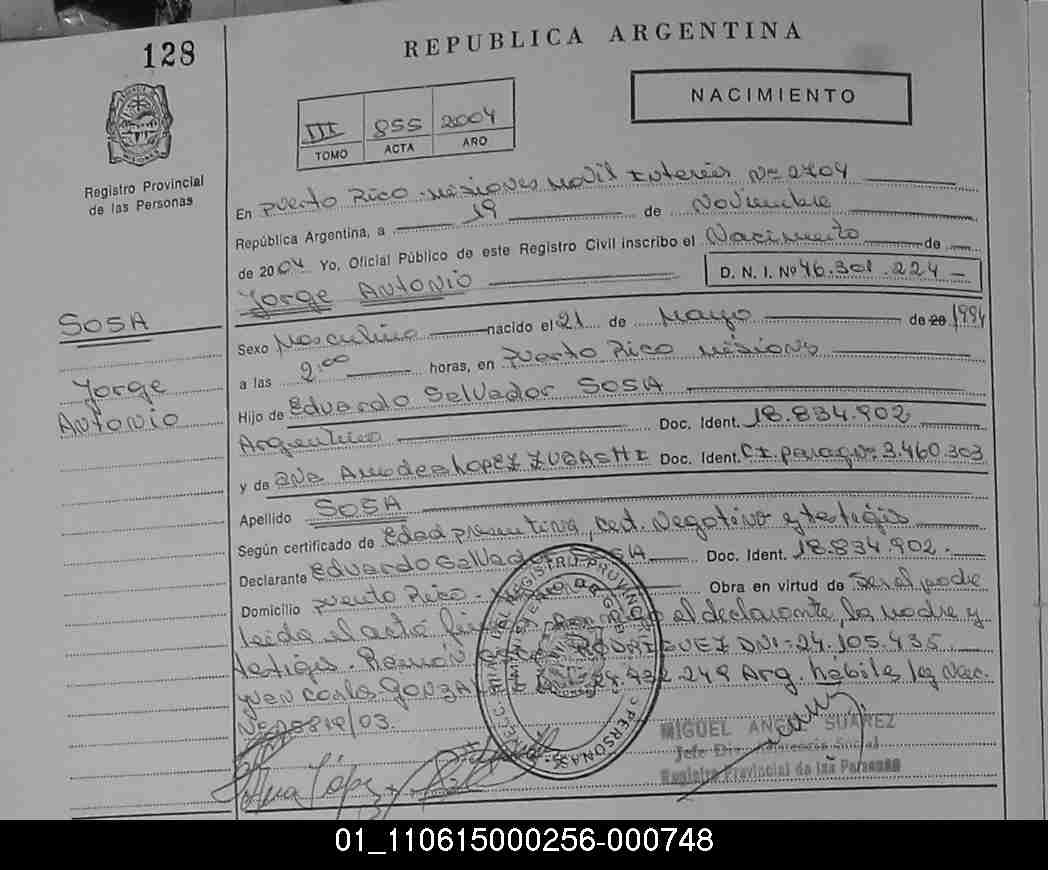 128
REPUBLICA ARGENTINA
NACIMIENTO
III 855 2004
TOMO ACTA AÑO
Registro Provincial
de las Personas
En Puerto Rico - Misiones Movil Interior Nº 2704
República Argentina, a 19 de Noviembre
de 2004 Yo, Oficial Público de este Registro Civil inscribo el Nacimiento de
Jorge Antonio D. N. I. Nº 46.301.224
SOSA
Jorge
Antonio
Sexo Masculino nacido el 21 de Mayo de 20 1994
a las 2,00 horas, en Puerto Rico Misiones
Hijo de Eduardo Salvador SOSA
Argentino Doc. Ident. 18.834.902
y de Lopez Doc. Ident. C.I. parag. Nº 3.460.303
Apellido SOSA
Según certificado de Edad presuntiva, Ced. Negativo y testigos
Declarante Eduardo Salvador SOSA Doc. Ident. 18.834.902.
Domicilio Puerto Rico - Obra en virtud de Ser el padre
leida el acta el declarante, la madre y
testigos. Ramón RODRIGUEZ DNI: 24.105.435
Juan Carlos 249 Arg. hábiles ley Nac.
Nº 25819/03.
Ana López
MIGUEL ANGEL SUAREZ
Jefe
Registro Provincial de las Personas
01_110615000256-000748